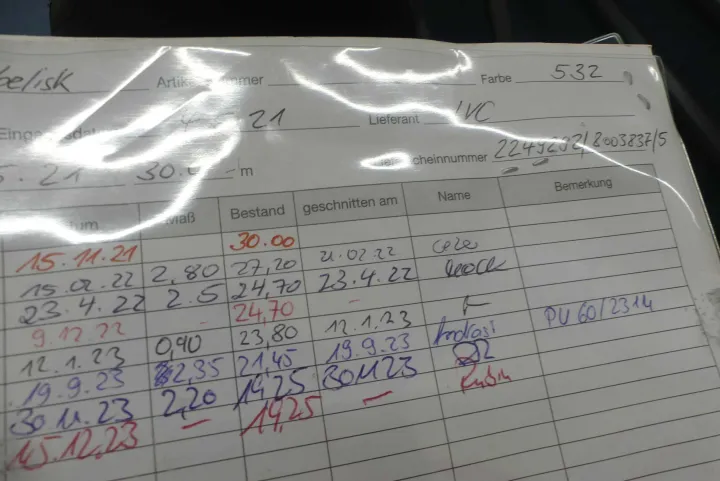 belisk Artik mmer Farbe 532
Einga sda 21 Lieferant IVC
5.21 30. m scheinnummer 2249282/8003837/5
tum Maß Bestand geschnitten am Name Bemerkung
15.11.21 30.00
15.02.22 2,80 27,20 21.02.22
23.4.22 2.5 24,70 23.4.22
9.12.22 - 24,70 -
12.1.23 0,40 23,80 12.1.23 PV 60/2314
19.9.23 2,35 21,45 19.9.23
30.11.23 2,20 19,25 30.11.23
15.12.23 - 19,25 -